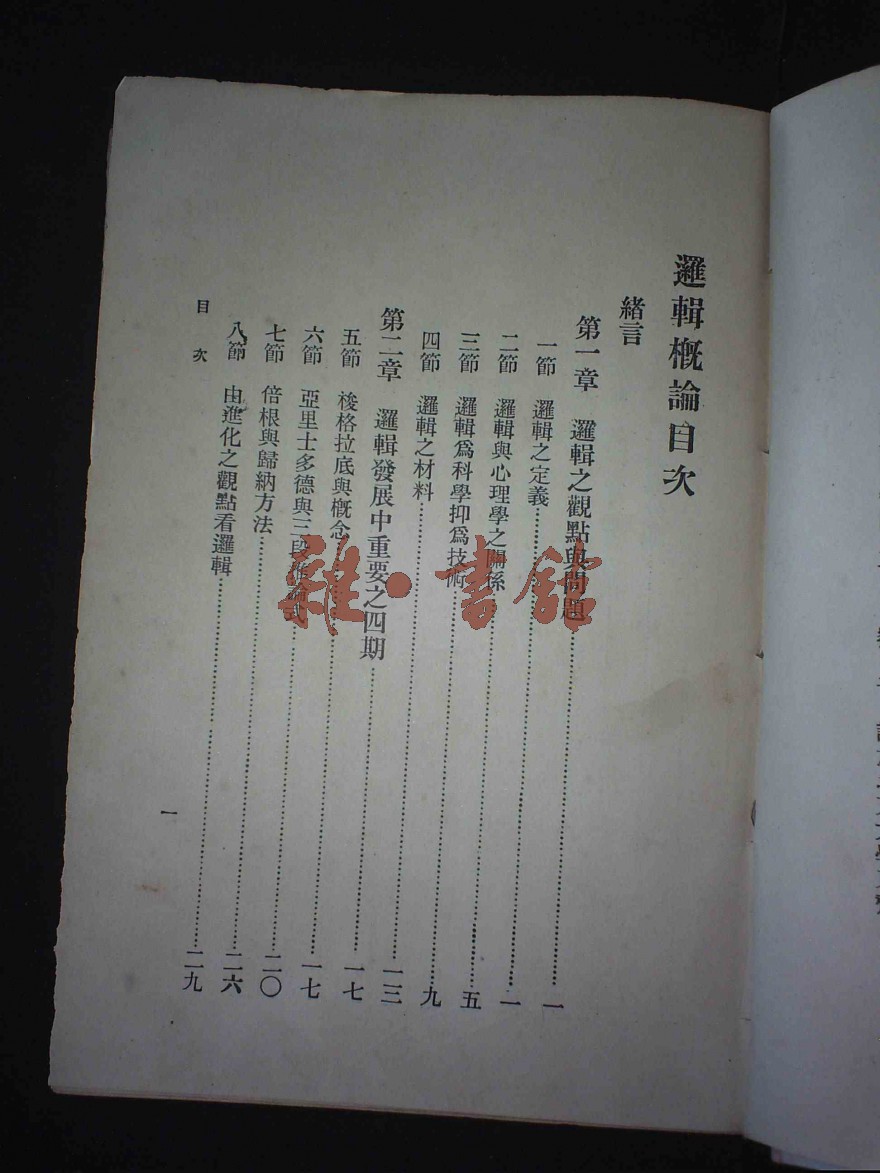 邏輯概論目次
緒言
第一章　邏輯之觀點與問題……一
一節　邏輯之定義……一
二節　邏輯與心理學之關係……五
三節　邏輯爲科學抑爲技術……九
四節　邏輯之材料……一三
第二章　邏輯發展中重要之四期……一七
五節　梭格拉底與概念……一七
六節　亞里士多德與三段推論式……二〇
七節　倍根與歸納方法……二六
八節　由進化之觀點看邏輯……二九
目次
一
雜·書館